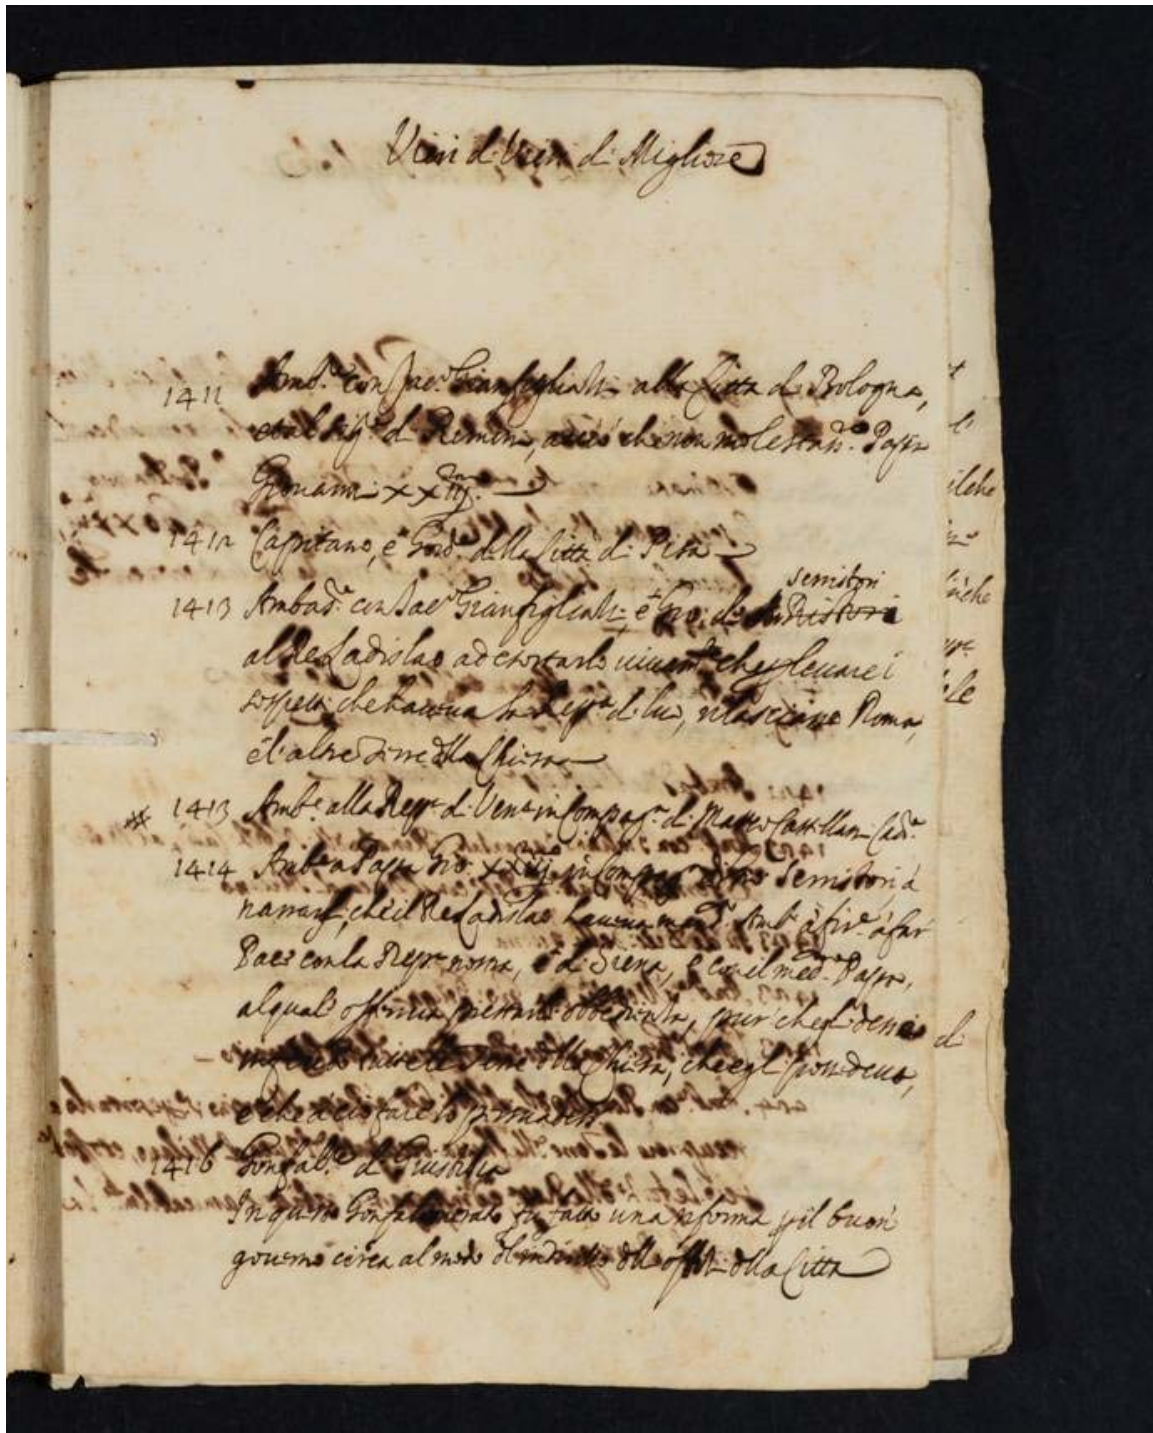 Vieri d. Vieri d. Migliore
1411 Amb.re con Jac.o Gianfigliazi alla Città d. Bologna,
et al Sig.re d. Remini, acciò che non molestass.o Papa
Giovanni XXiij.
1412 Capitano, e Gov.re della Città d. Pisa
Serristori
1413 Ambas.re con Jac.o Gianfigliazi, e Gio: d. Ristori
al Re Ladislao ad esortarlo vivam.te che p levare i
sospetti che haveva la Rep.a d. lui, rilasciasse Roma,
e l'altre Terre dlla Chiesa
1413 Amb.re alla Rep.a d. Ven.a in Compag.a d. Matteo Castellani Cav.re
1414 Amb.re a Papa Gio: XXiij in Compag.a Serristori, a
narrargli, che il Re Ladislao haveva mand.o Amb.ri a fir.e a far
Pace con la Rep.a nostra, e d. Siena, e con il med.o Papa,
al qual offeriva prestarli obbedienza, pur che gl. dessi
le Terre dlla Chiesa, che egl. possedeva,
e che a ciò fare lo
1416 Gonfal.re d. Giustizia
In questo Gonfalonerato fu fatta una riforma p il buon
governo circa al modo dll offiti dlla Città
ilche
d.